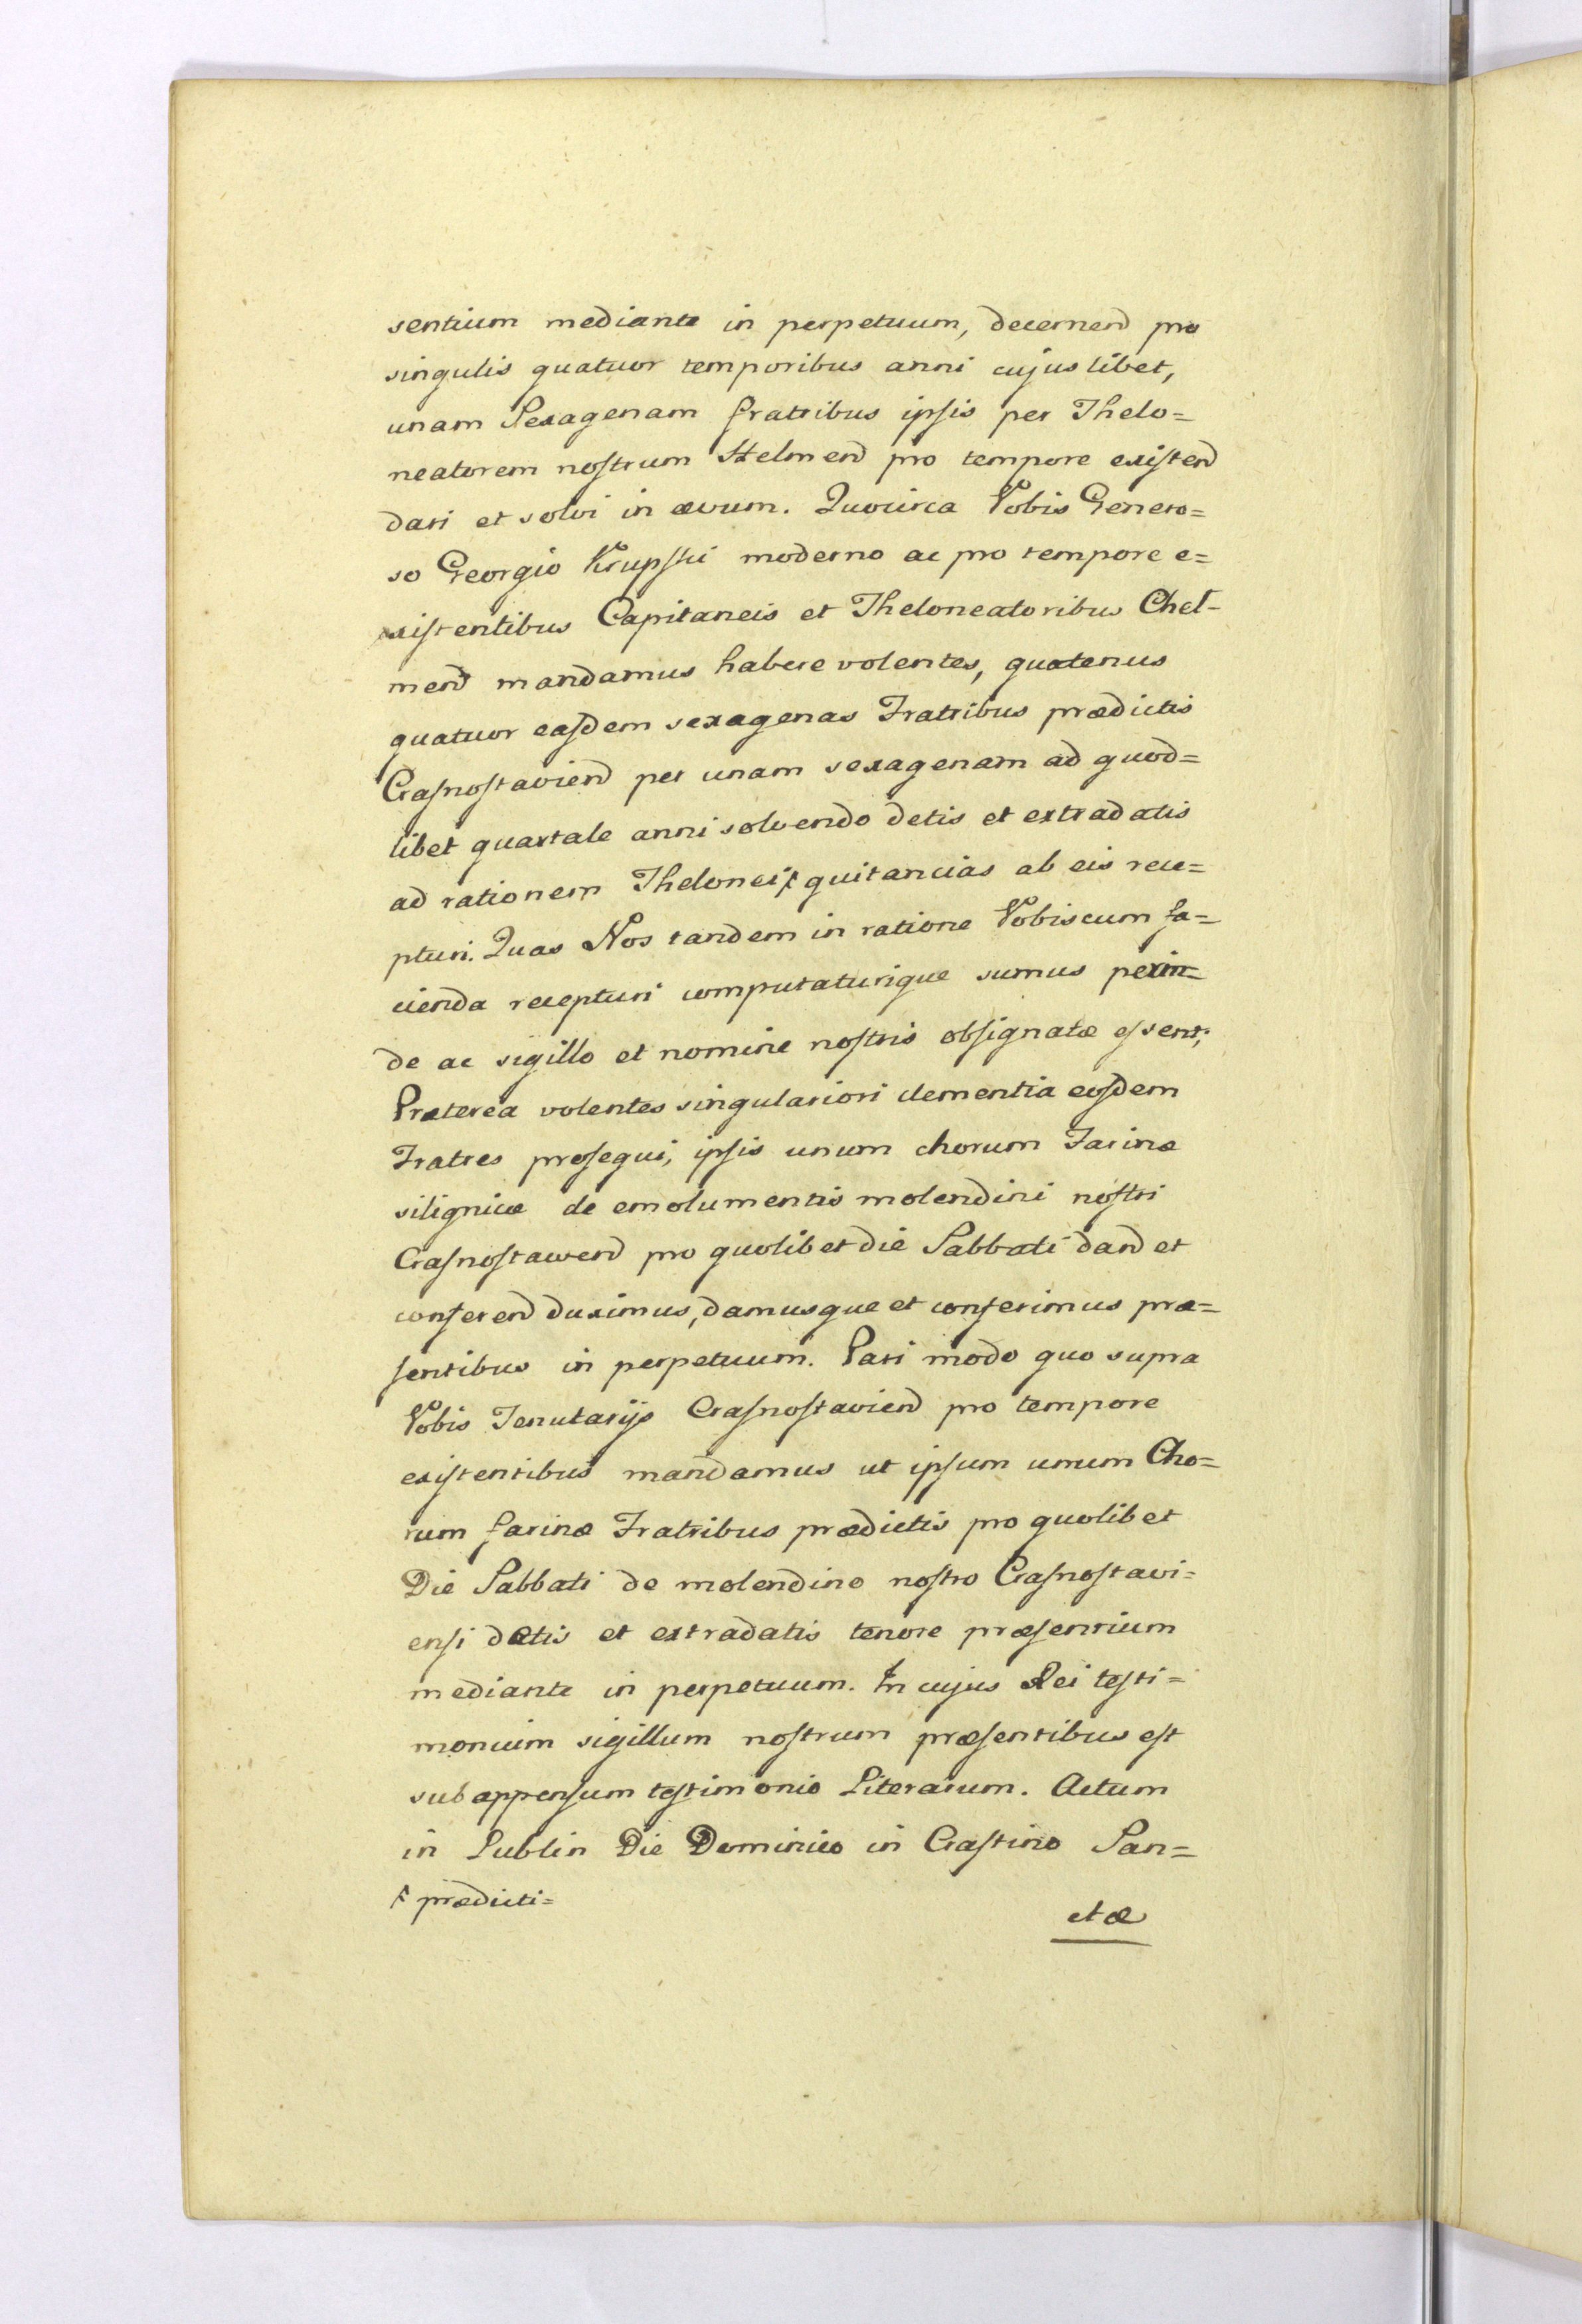 sentium mediante in perpetuum, decernend pro
singulis quatuor temporibus anni cujus libet,
unam Sexagenam fratribus ipsis per Thelo=
neatorem nostrum Helmend pro tempore existend
dari et solvi in ævum. Quocirca Vobis Genero=
so Georgio Krupski moderno ac pro tempore e=
xistentibus Capitaneis et Theloneatoribus Chel-
mend mandamus habere volentes, quatenus
quatuor easdem sexagenas Fratribus prædictis
Crasnostaviend per unam sexagenam ad quod=
libet quartale anni solvendo detis et extradatis
ad rationem Thelonei ꝉ quitancias ab eis rece=
pturi. Quas Nos tandem in ratione Vobiscum fa=
cienda recepturi computaturique sumus perin=
de ac sigillo et nomine nostris obsignatæ essent;
Præterea volentes singulariori clementia eosdem
Fratres prosequi, ipsis unum chorum Farinæ
siligniæ de emolumentis molendini nostri
Crasnostawend pro quolibet die Sabbati dand et
conferend duximus, damusque et conferimus præ=
sentibus in perpetuum. Pari modo quo supra
Vobis Tenutarijs Crasnostaviend pro tempore
existentibus mandamus ut ipsum unum Cho=
rum farinæ Fratribus prædictis pro quolibet
Die Sabbati de molendino nostro Crasnostavi=
ensi detis et extradatis tenore præsentium
mediante in perpetuum. In cujus Rei testi=
monium sigillum nostrum præsentibus est
subappensum testimonio Literarum. Actum
in Lublin Die Dominico in Crastino San=
ꝉ prædicti=
ctæ